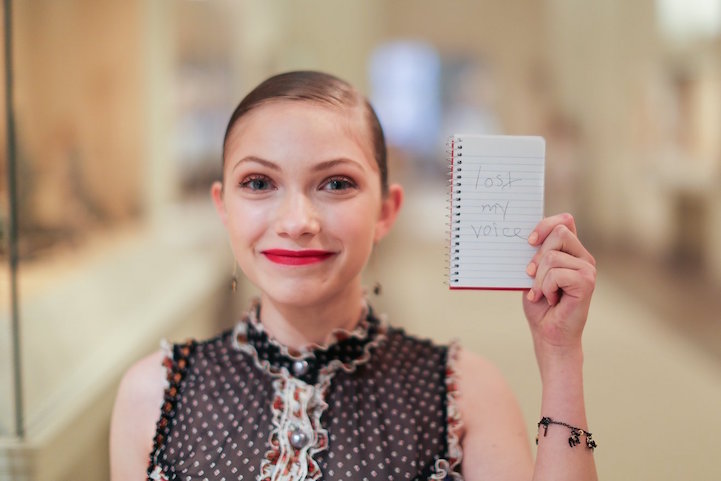 lost
my
voice